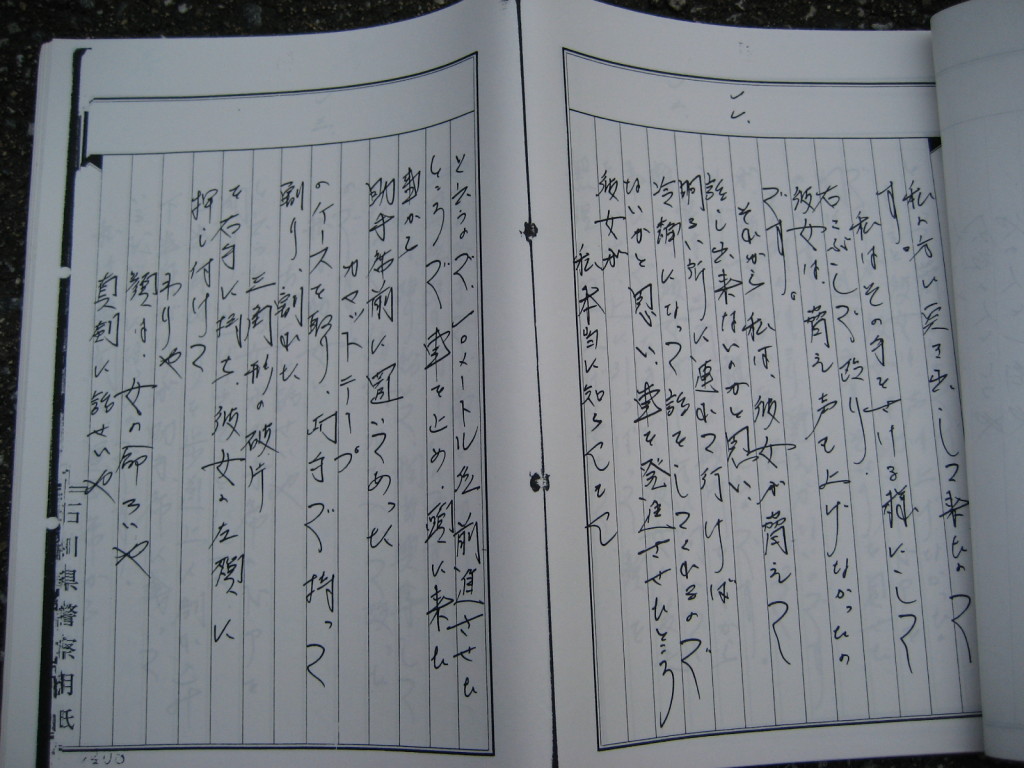 私の方に突き出して来たので
す。
私はその手をさける様にして
右こぶしで殴り、
彼女は、脅え声も上げなかったの
です。
それから私は、彼女が脅えて
話し出来ないのかと思い、
明るい所に連れて行けば
冷静になって話をしてくれるので
ないかと思い、車を発進させたところ
彼女が
私本当に知らんもん
と云うので、一〇メートル位前進させた
ところで車を止め、頭に来た
助手席前に置いてあった
カセットテープ
のケースを取り、両手で持って
割り、割れた
三角形の破片
を右手に持ち、彼女の左頬に
押し付けて
わりゃ
顔は、女の命ろいや
真剣に話せいや
石川県警察